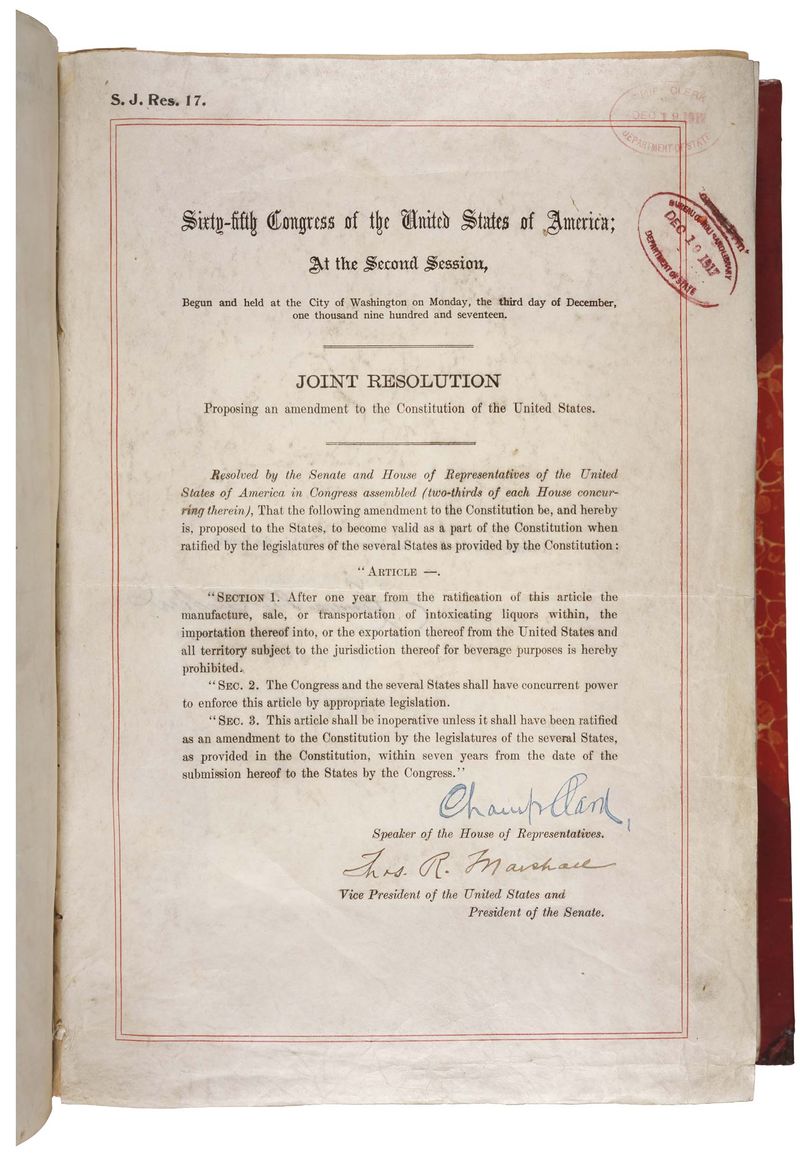 S. J. Res. 17.
CHIEF CLERK
DEC 19 1917
DEPARTMENT OF STATE
BUREAU OF ROLLS AND LIBRARY
DEC 19 1917
DEPARTMENT OF STATE
Sixty-fifth Congress of the United States of America;
At the Second Session,
Begun and held at the City of Washington on Monday, the third day of December,
one thousand nine hundred and seventeen.
JOINT RESOLUTION
Proposing an amendment to the Constitution of the United States.
Resolved by the Senate and House of Representatives of the United
States of America in Congress assembled (two-thirds of each House concur-
ring therein), That the following amendment to the Constitution be, and hereby
is, proposed to the States, to become valid as a part of the Constitution when
ratified by the legislatures of the several States as provided by the Constitution:
“ARTICLE —.
“SECTION 1. After one year from the ratification of this article the
manufacture, sale, or transportation of intoxicating liquors within, the
importation thereof into, or the exportation thereof from the United States and
all territory subject to the jurisdiction thereof for beverage purposes is hereby
prohibited.
“SEC. 2. The Congress and the several States shall have concurrent power
to enforce this article by appropriate legislation.
“SEC. 3. This article shall be inoperative unless it shall have been ratified
as an amendment to the Constitution by the legislatures of the several States,
as provided in the Constitution, within seven years from the date of the
submission hereof to the States by the Congress.”
Champ Clark
Speaker of the House of Representatives.
Thos. R. Marshall
Vice President of the United States and
President of the Senate.